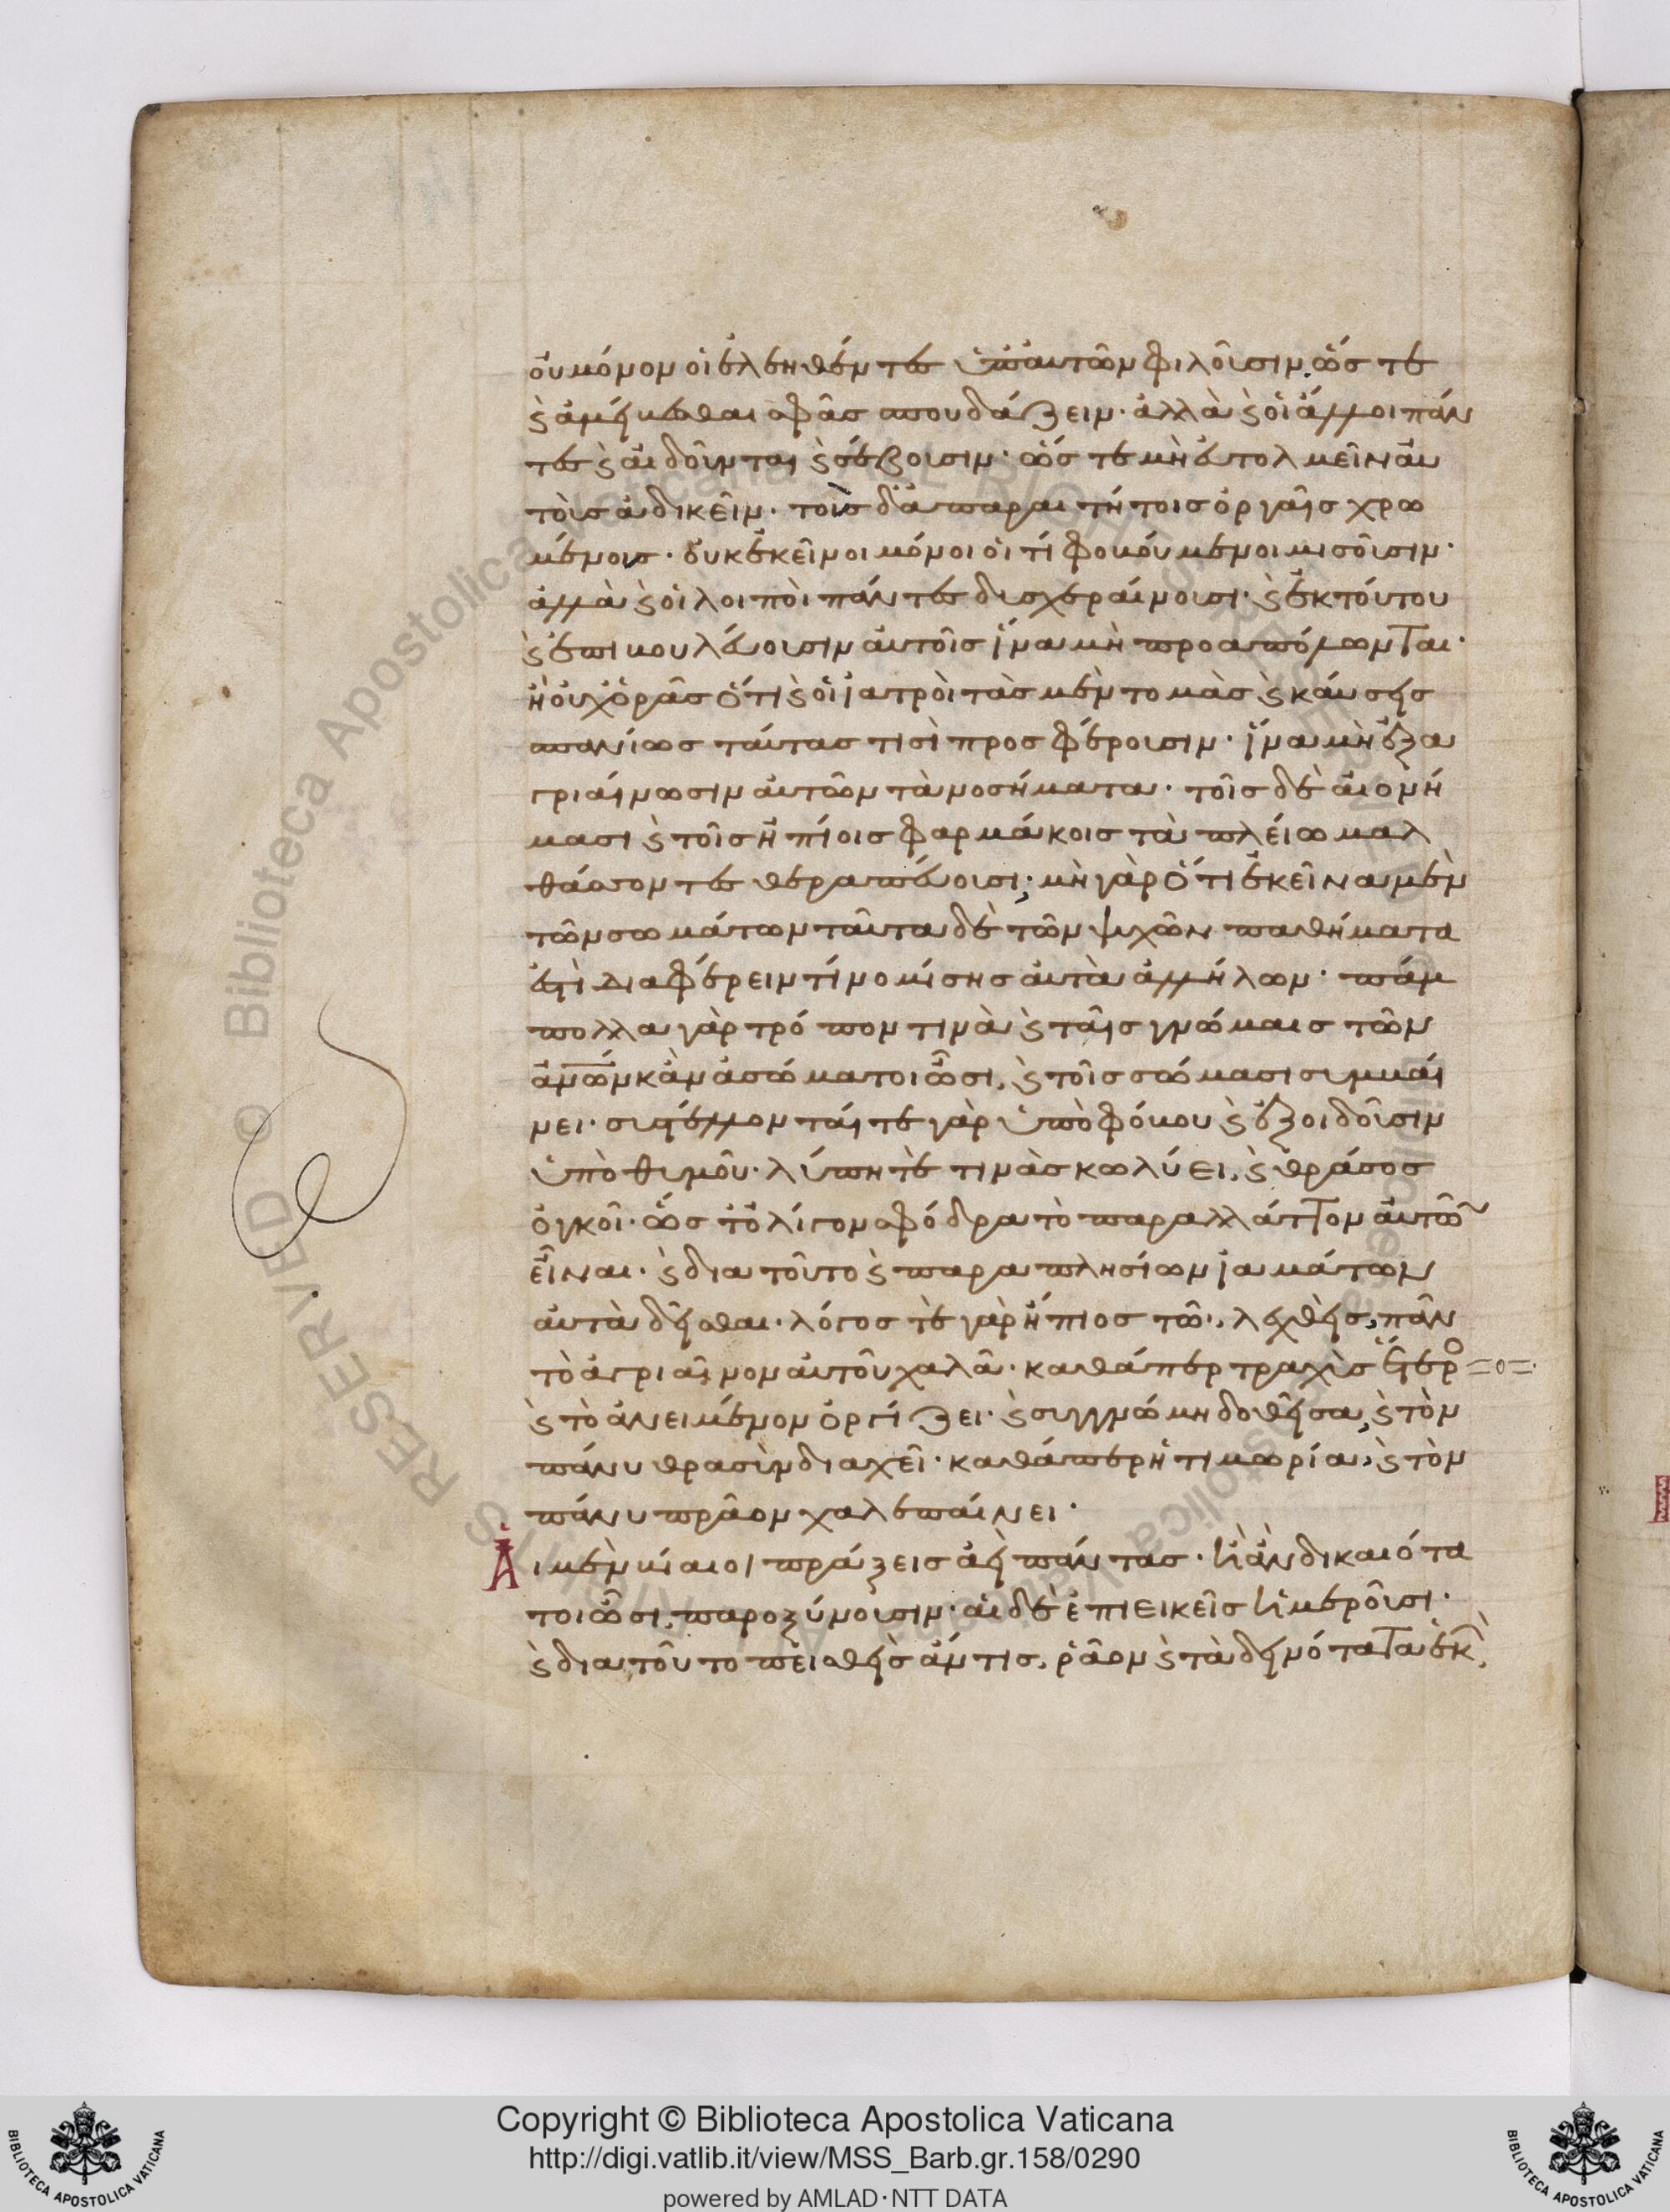 οὐ μόνον οἱ ἐλεηθέντες ὑπ' αὐτῶν φιλοῦσιν, ὥστε
καὶ ἀμείβεσθαι σφᾶς σπουδάζειν· ἀλλὰ καὶ οἱ ἄλλοι πάν
τες καὶ αἰδοῦνται καὶ σέβουσιν· ὥστε μὴ εὐτολμεῖν αυ
τοὺς ἀδικεῖν· τοὺς δ' ἀπαραιτήτοις ὀργαῖς χρω
μένους· οὐκ ἐκεῖνοι μόνοι οἵ τι φοβούμενοι μισοῦσιν·
ἀλλὰ καὶ οἱ λοιποὶ πάντες δυσχεραίνουσι· καὶ ἐκ τούτου
καὶ ἐπιβουλεύουσιν αὐτοῖς ἵνα μὴ προαπόλωνται·
ἢ οὐχ ὁρᾶς ὅτι καὶ οἱ ἰατροὶ τὰς μὲν τομὰς καὶ καύσεις
σπανίως ταύτας τισὶ προσφέρουσιν· ἵνα μὴ ἐξα
γριαίνωσιν αὐτῶν τὰ νοσήματα· τοῖς δὲ αἰονή
μασι καὶ τοῖς ἠπίοις φαρμάκοις τὰ πλείω μαλ
θάσσοντες θεραπεύουσι· μὴ γὰρ ὅτι ἐκεῖνα μὲν
τῶν σωμάτων ταῦτα δὲ τῶν ψυχῶν παθήματα
ἐστὶ διαφέρειν τι νομίσῃς αὐτὰ ἀλλήλων· πάμ
πολλα γὰρ τρόπον τινὰ καὶ ταῖς γνώμαις τῶν
ἀνῶν κἂν ἀσώματοι ὦσι, καὶ τοῖς σώμασι συμβαί
νει· συστέλλονταί τε γὰρ ὑπὸ φόβου καὶ ἐξοιδοῦσιν
ὑπὸ θυμοῦ· λύπη τέ τινὰς κωλύει, καὶ θράσος
ὀγκοῖ· ὥστ' ὀλίγον σφόδρα τὸ παραλλάττον αὐτῶν
εἶναι· καὶ διὰ τοῦτο καὶ παραπλησίων ἰαμάτων
αὐτὰ δεῖσθαι· λόγος τε γὰρ ἤπιος τῳ, λεχθεὶς, πᾶν
τὸ ἀγριαῖνον αὐτοῦ χαλᾷ· καθάπερ τραχὺς ἕτερο
καὶ τὸ ἀνειμένον ὀργίζει· καὶ συγγνώμη δοθεῖσα, καὶ τὸν
πάνυ θρασὺν διαχεῖ· καθάπερ ἡ τιμωρία, καὶ τὸν
πάνυ πρᾶον χαλεπαίνει·
Αἱ μὲν βίαιοι πράξεις ἀεὶ πάντας· κἂν δικαιότα
τοι ὦσι, παροξύνουσιν· αἱ δὲ ἐπιεικεῖς ἡμεροῦσι·
καὶ διὰ τοῦτο πεισθεὶς ἄν τις, ῥᾷον καὶ τὰ δεινότατα ἑκ
Copyright © Biblioteca Apostolica Vaticana
http://digi.vatlib.it/view/MSS_Barb.gr.158/0290
powered by AMLAD·NTT DATA